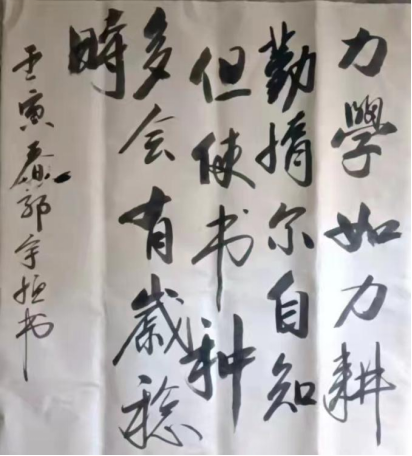 力學如力耕
勤惰尔自知
但使书种
多会有歲稔
時
壬寅春郭守恒书